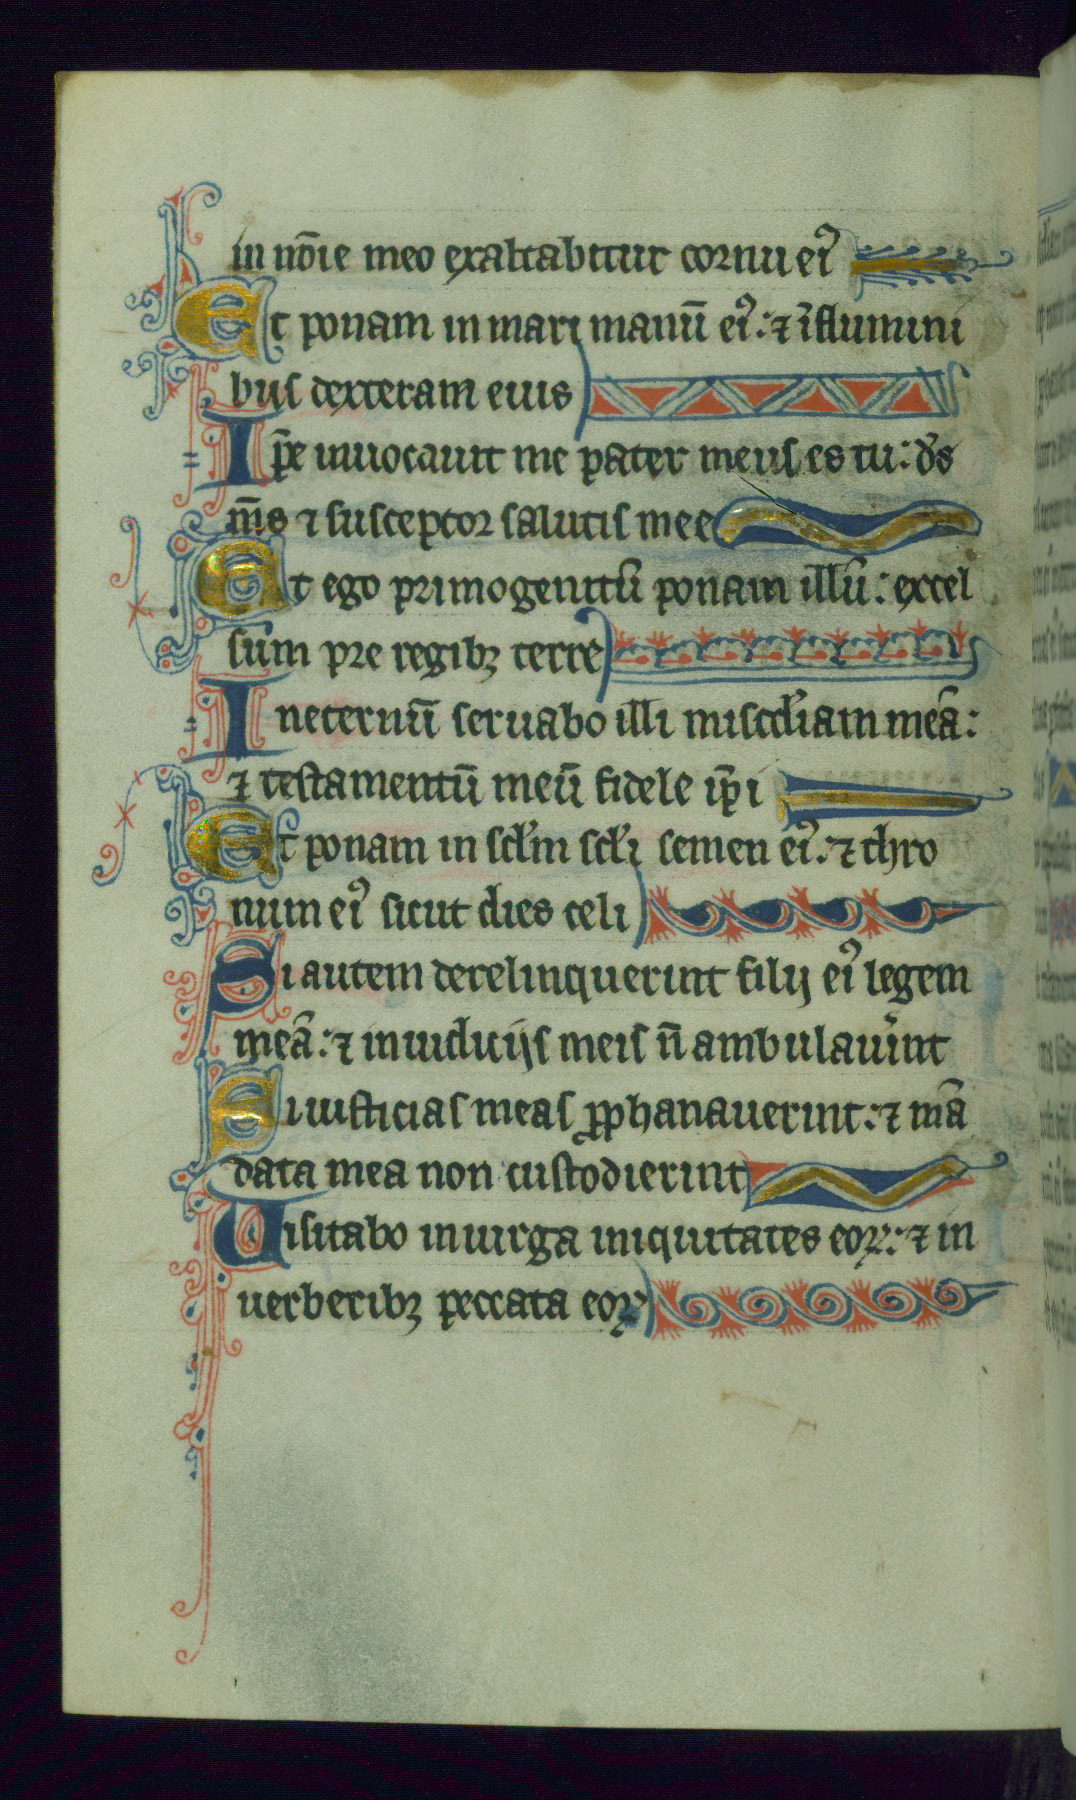 in nōie meo exaltabitur cornu eiꝰ
Et ponam in mari manū eiꝰ: ⁊ ī flumini
bus dexteram eius
Ip̄e inuocauit me pater meus es tu: ds̄
m̄s ⁊ susceptor salutis mee
Et ego primogenitū ponam illū: excel
sum pre regibꝫ terre
In eternū seruabo illi misc̄diam meā:
⁊ testamentū meū fidele ip̄i
Et ponam in scl̄m scl̄i semen eiꝰ: ⁊ thro
num eiꝰ sicut dies celi
Si autem derelinquerint filij eiꝰ legem
meā: ⁊ in iudicijs meis n̄ ambulauīnt
Si iusticias meas ꝓphanauerint: ⁊ mā
data mea non custodierint
Uisitabo in uirga iniquitates eoꝝ: ⁊ in
uerberibꝫ peccata eoꝝ